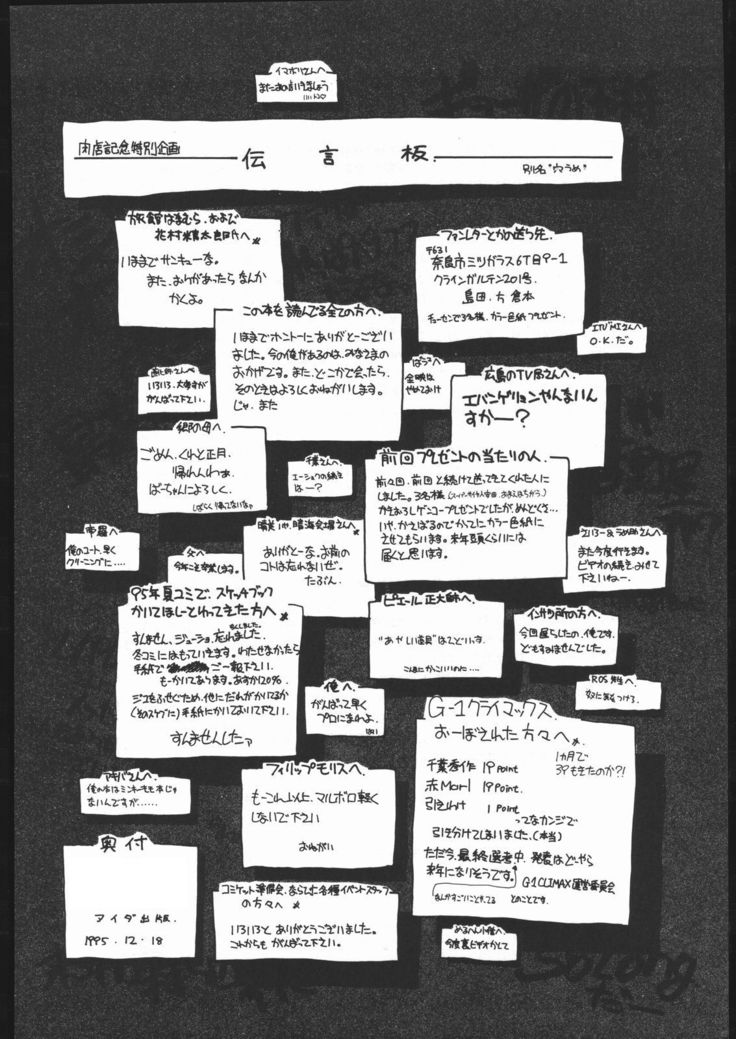 イマホリさんへ
またおの言いきましょう
肉店記念特別企画
伝言板
別名"ウマうめ"
旅館はまむら、および
花村慎太郎氏へ
いままでサンキューな。
また、おりがあったらなんか
かくよ。
ファンレターとかの送り先
〒631
奈良市ミツガラス6丁目9-1
クラインガルテン201号
島田 方 倉本
チューセンで3名様、カラー色紙プレゼント.
この本を読んでる全ての方へ.
いままでホントーにありがとーござい
ました。今の俺があるのは、みなさまの
おかげです。また、どこかで会ったら、
そのときはよろしくおねがいします。
じゃ、また
O.K.だ。
いろいろ、大変ですが
がんばって下さい.
金映は
やめておけ
広島のTV局さんへ.
エバンゲリョンやんないん
すかー?
郷の母へ.
ごめん、くれと正月、
帰れんわぁ
ばーちゃんによろしく.
しばらく帰ってないなァ
千葉さんへ.
エーショウの続き
はー?
前回プレゼントの当たりの人.
前々回、前回と続けて送ってきてくれた人に
しました。3名様
かきおろしゲンコープレゼントでしたが、めんどくさ…
いや、かえばるのでかってにカラー色紙に
させてもらいます。来年頭くらいには
届くと思います。
帝羅へ
俺のコート、早く
クリーニングに……
父へ
今年こそ卒業します。
晴美ちゃ、晴海会場さんへ
ありがとーな、お前の
コトは忘れないぜ。
たぶん.
また今度行きます。
ビデオの続きみせて
下さいねー.
95年夏コミで、スケッチブック
かいてほしーとわってきた方へ
すんません、ジューショ、忘れました.
冬コミにはもっていきます。わたせなかったら
手紙で ご一報下さい.
もーかいてあります。あすか120%
ジコをふせぐため、他にだれがかいてるか
(そのスケブに)手紙にかいておいて下さい.
すんませんしたァ
ピエール正大師へ
"あやしい道具"はてどいす.
こんなにかっこいいのた….
インサツ所の方へ.
今回遅らしたの、俺です.
どもすみませんでした。
ROS先生へ
奴に気をつけろ.
俺へ.
がんばって早く
プロになれよ.
G-1クライマックス
おーぼされた方々へ
1ヵ月で
39もきたのか?!
千葉秀作 19 point
赤Mari 19 point.
引き分け 1 point
ってなカンジで
引き分けてしまいました.(本当)
ただ今、最終選考中、発表はどーやら
来年になりそうです。
G1CLIMAX運営委員会
なんかすごいことやってる とのことです.
アキバさんへ.
俺の本はミンキーモモ本じゃ
ないんですが……
フィリップモリスへ.
もーこれ以上、マルボロ軽く
しないで下さい
おねがい
奥付
アイダ出版.
1995.12.18
コミケット準備会、ならびに各種イベントスタッフ
の方々へ
いろいろと ありがとうございました。
これからも がんばって下さい.
めるへん小僧へ
今度裏ビデオかして
So Long
だー